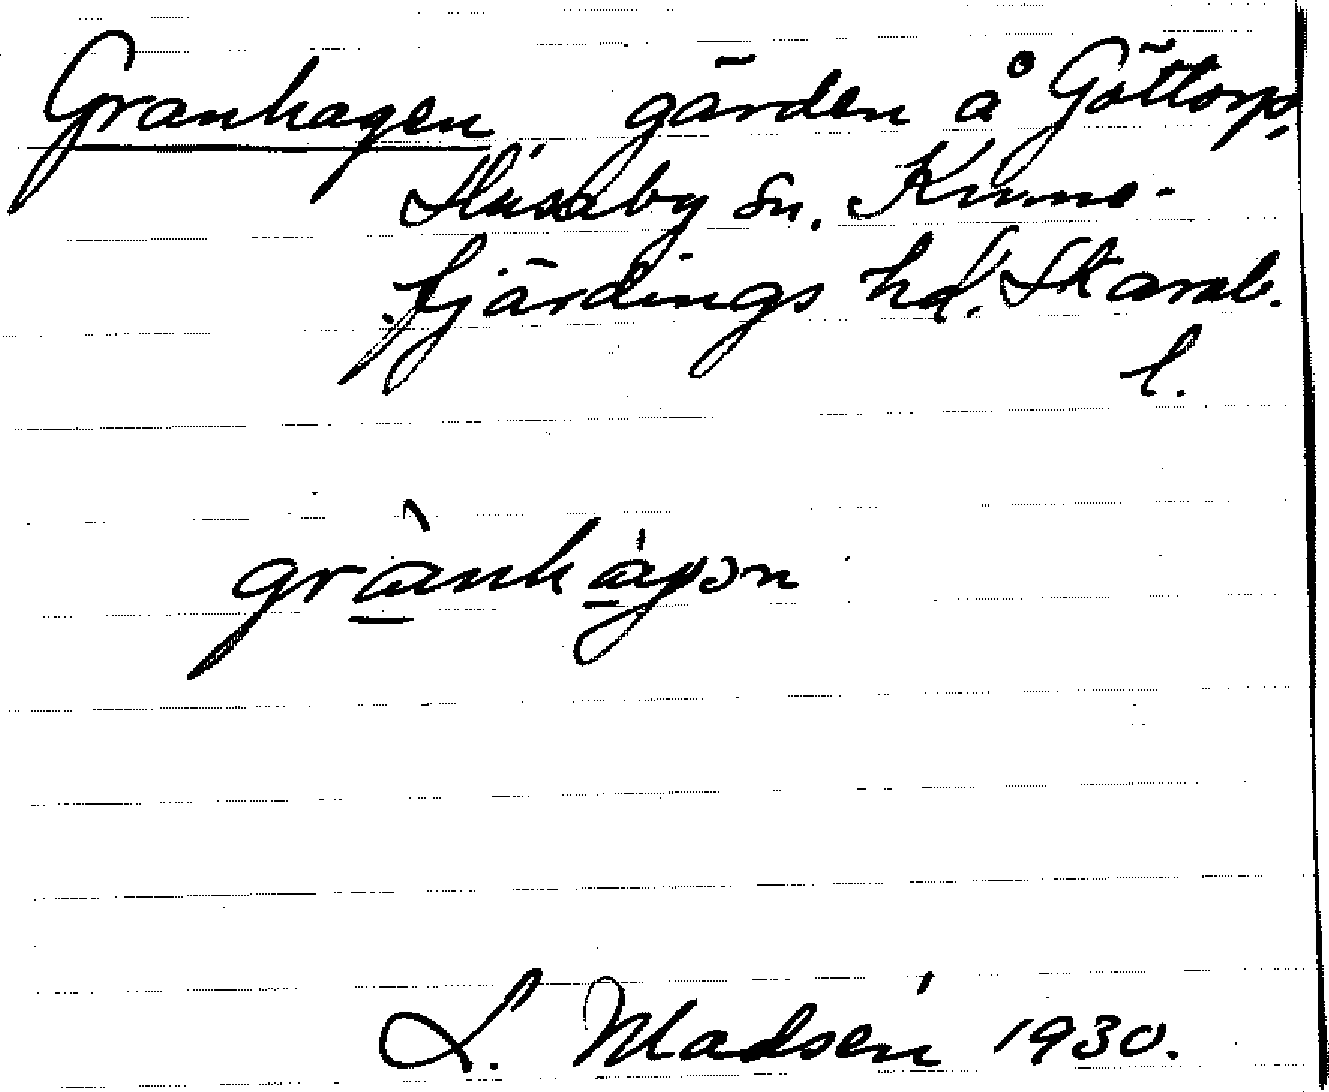 Granhagen gärden å Göttorp,
Husaby sn. Kinne-
fjärdings hd. Skarab.
l.
grànhágən
L. Madsén 1930.